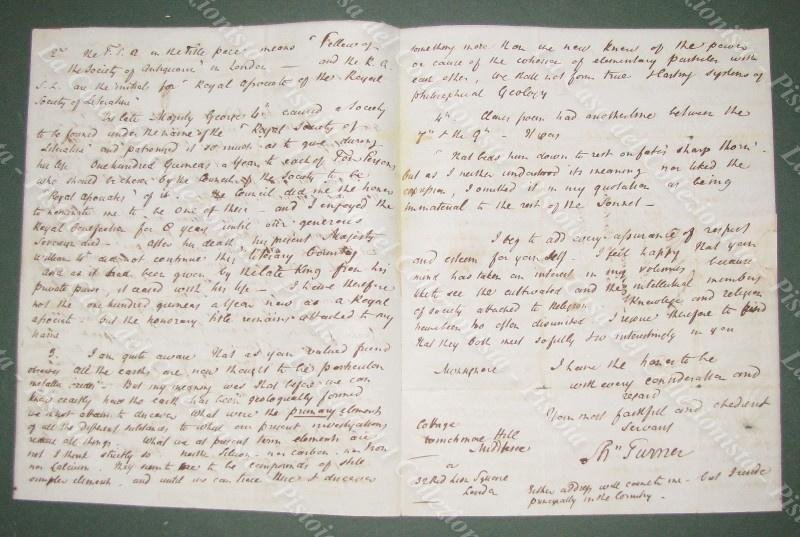 2nd the F.S.A in the title page means "Fellow of
the Society of Antiquaries" in London — and the R.A.
S.L. are the initials for "Royal Associate of the Royal
Society of Literature"
His late Majesty George 4th caused a Society
to be formed under the name of the "Royal Society of
Literature" and patronized it so much as to give during
his life One hundred Guineas a Year to each of Ten Persons
who should be chosen by the Council of the Society to be
"Royal Associates" of it. The Council did me the honor
to nominate me to be One of these — and I enjoyed the
Royal benefaction for 6 years until our generous
Sovereign died — After his death his present Majesty
William 4th did not continue this literary Bounty
and as it had been given by the late King from his
private purse, it ceased with his life — I have therefore
not the one hundred guineas a Year now as a Royal
Associate — but the honorary title remains attached to my
name
3. I am quite aware that as your valued friend
observes all the earths are now thought to be
metallic oxides. But my meaning was that before we can
know exactly how the earth has been geologically formed
we must obtain to discover what were the primary elements
of all the different substances to what our present investigations
reduce all things. What we at present term elements are
not I think strictly so — neither Silicon — nor carbon — nor Iron
nor Calcium. They seem to me to be compounds of still
simpler elements, and until we can trace these & discover
something more than we now know of the power
or cause of the cohesion of elementary particles with
each other, we shall not form true & lasting systems of
philosophical Geology
4th had another line between the
7th & the 9th — It was
"That bids him down to rest on fate's sharp thorn"
but as I neither understood its meaning nor liked the
expression, I omitted it in my quotation as being
immaterial to the rest of the Sonnet —
I beg to add every assurance of respect
and esteem for yourself. I feel happy that your
mind has taken an interest in my volumes because
I like to see the cultivated and the intellectual members
of society attached to Religion. Knowledge and religion
have been too often disunited I rejoice therefore to find
that they both meet so fully & so interestingly in you
I have the honor to be
with every consideration and
regard
Your most faithful and obedient
Servant
Shn Turner
Cottage
Winchmore Hill
Middlesex
or
32 Red Lion Square
London
Either address will come to me — but I reside
principally in the Country —